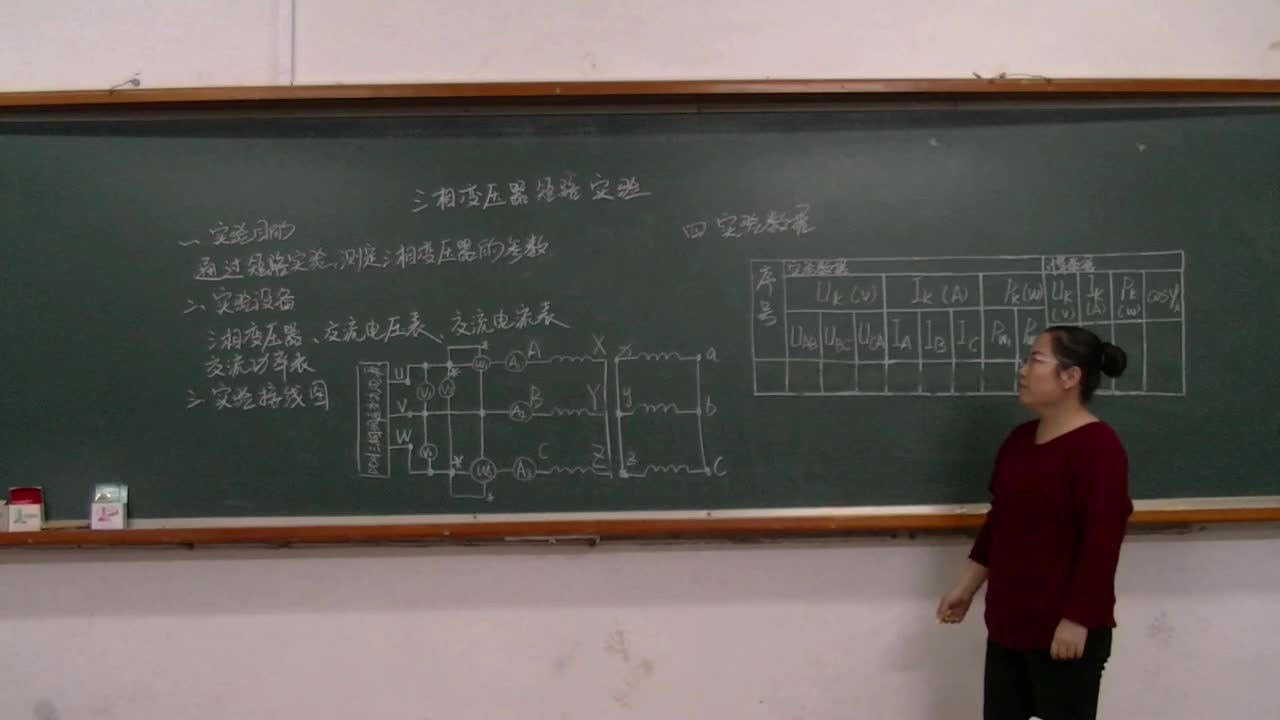 三相变压器短路实验
一、实验目的
通过短路实验,测定三相变压器的参数
二、实验设备
三相变压器、交流电压表、交流电流表
交流功率表
三、实验接线图
U
V
W
V₁
V₂
W₁
A₁
A
X
x
a
A₂
B
Y
y
b
W₂
A₃
C
Z
z
c
四 实验数据
序号 实验数据 计算数据
UK(V) IK(A) PK(W) UK(V) IK(A) PK(W) cosφk
UAB UBC UCA IA IB IC PK1